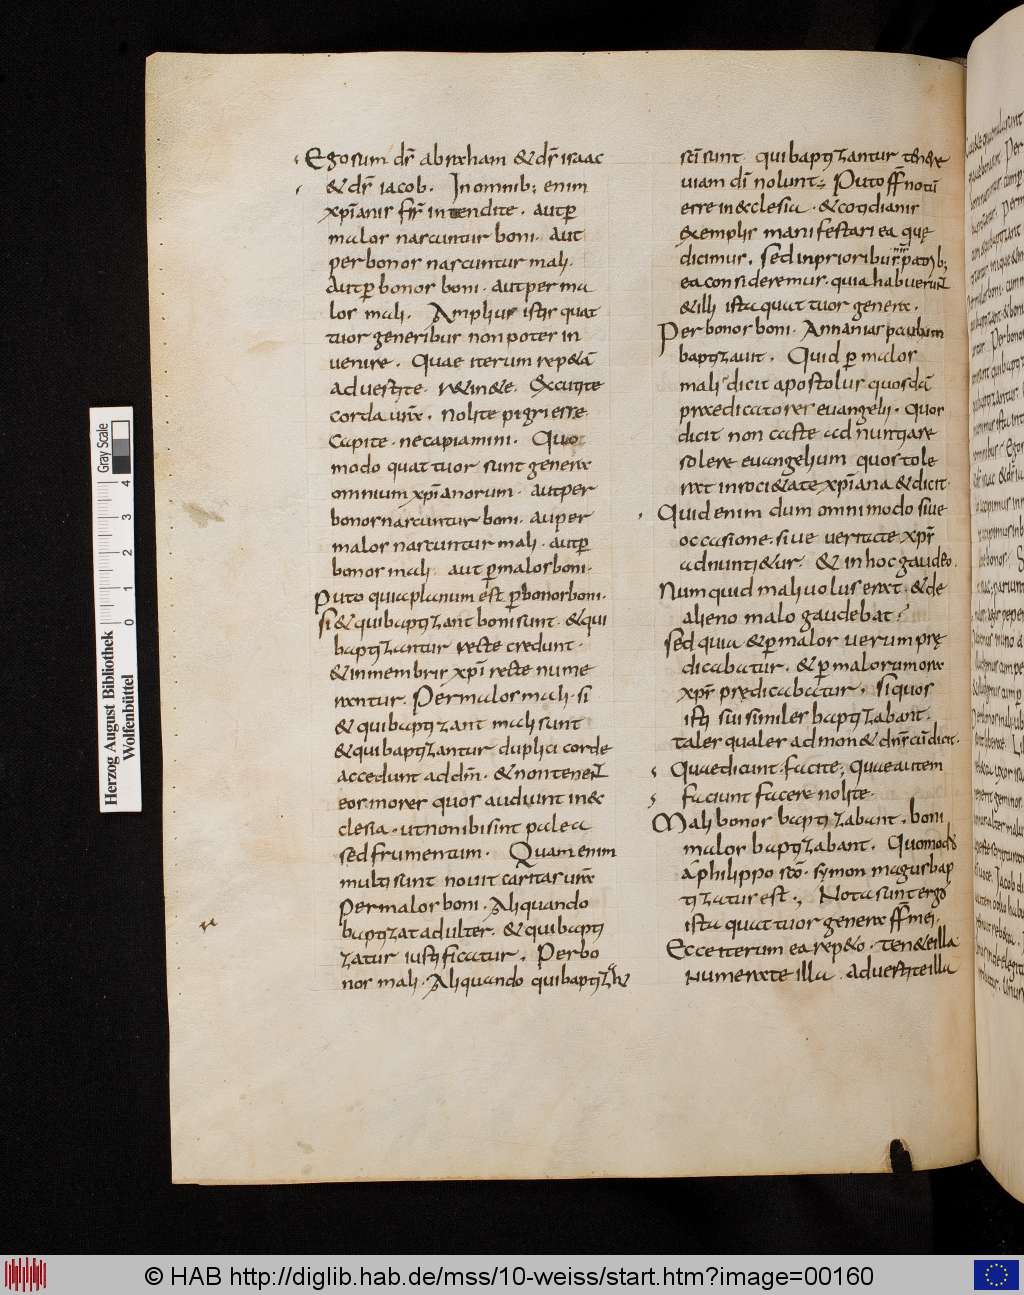 Ego sum ds̄ abraham & ds̄ isaac
& ds̄ iacob. In omnib; enim
xp̄ianis fr̄s intendite. aut ꝑ
malos nascuntur boni. aut
per bonos nascuntur mali.
Aut ꝑ bonos boni. aut per ma
los mali. Amplius istis quat
tuor generibus non potes in
uenire. Quae iterum rep&ā
aduertite. r&in&e. Excutite
corda ur̄a. nolite pigri esse
Capite. ne capiamini. Quo
modo quattuor sunt genera
omnium xp̄ianorum. aut per
bonos nascuntur boni. aut per
malos nascuntur mali. aut ꝑ
bonos mali. aut ꝑ malos boni.
Puto quia planum est ꝑ bonos boni.
si & qui baptizant boni sunt. & qui
baptizantur recte credunt.
& in membris xp̄i recte nume
rantur. Per malos mali. si
& qui baptizant mali sunt
& qui baptizantur duplici corde
accedunt ad dm̄. & non tenent
eos mores quos audiunt in ec
clesia. ut non ibi sint palea
sed frumentum. Quam enim
multi sunt nouit caritas ur̄a
Per malos boni. Aliquando
baptizat adulter. & qui bapti
zatur iustificatur. Per bo
nos mali. Aliquando qui baptizant
sc̄i sunt. qui baptizantur tenere
uiam dī nolunt; Puto ff̄ notū
esse in ecclesia. & cotidianis
exemplis manifestari ea quę
dicimus. sed in prioribus nr̄is patrib;
ea consideremus. quia habuerunt
& illi ista quattuor genera.
Per bonos boni. Annanias paulum
baptizauit. Quid ꝑ malos
mali dicit apostolus quosdā
praedicatores euangelii. Quos
dicit non caste adnuntiare
solere euangelium quos tole
rat in societate xp̄iana & dicit.
Quid enim dum omni modo siue
occasione. siue ueritate xp̄s
adnuntietur. & in hoc gaudeo.
Numquid maliuolus erat. & de
alieno malo gaudebat?
sed quia & ꝑ malos uerum prę
dicabatur. & ꝑ malorum ora
xp̄s prędicabatur. si quos
isti sui similes baptizabant.
tales quales admon& dn̄s cū dicit.
Quae dicunt. facite; Quae autem
faciunt facere nolite.
Mali bonos baptizabant. boni
malos baptizabant. Quomodo
a philippo sc̄o. symon magus bap
tizatus est; Nota sunt ergo
ista quattuor genera ff̄ mei.
Ecce iterum ea rep&o. ten&e illa
numerate illa aduertite illa
Herzog August Bibliothek
Wolfenbüttel
0 1 2 3 4
Gray Scale
© HAB http://diglib.hab.de/mss/10-weiss/start.htm?image=00160